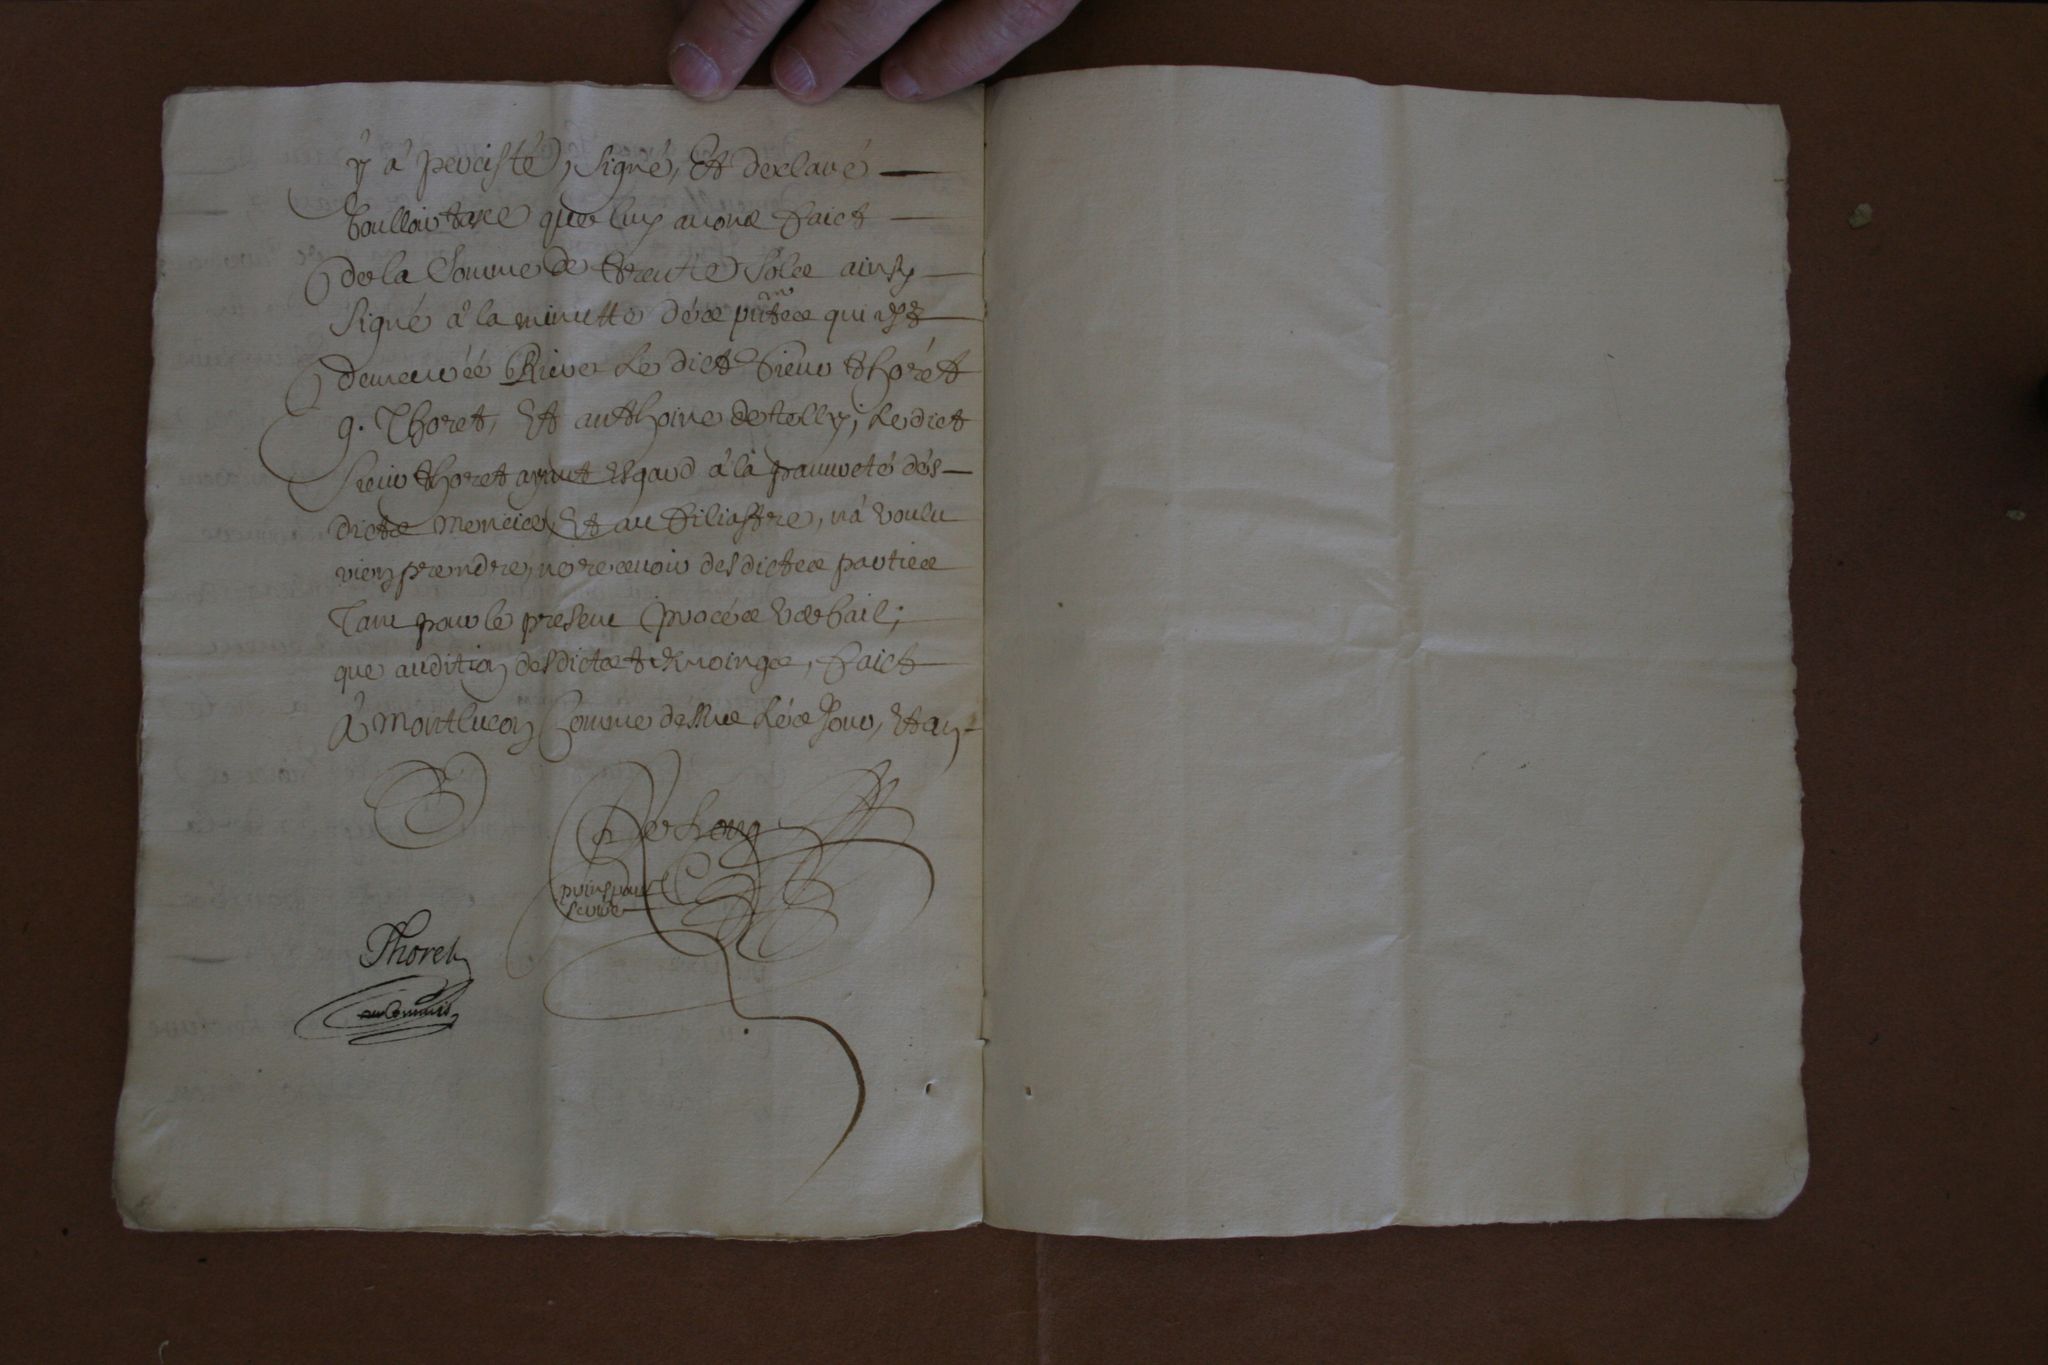 y â percisté, signé, Et declaré
voulloir taxe que luy avons faict
de la somme de trente solz ainsy
signé â la minutte déces pñtes qui est
demeurée Riere Le dict sieur thorét
g. Thoret, Et anthoine detelly, Le dict
sieur thoret ayant Esgard â là pauvreté dés
dictz Merciez, Et au filiastre, n'â voulu
rien prendre, ny recevoir desdictes parties
Tant pour le present procés verbail;
que audition desdictz tesmoinge, faict
Â Montlucon Comme dessus Lés Jour, Et an
Thoret